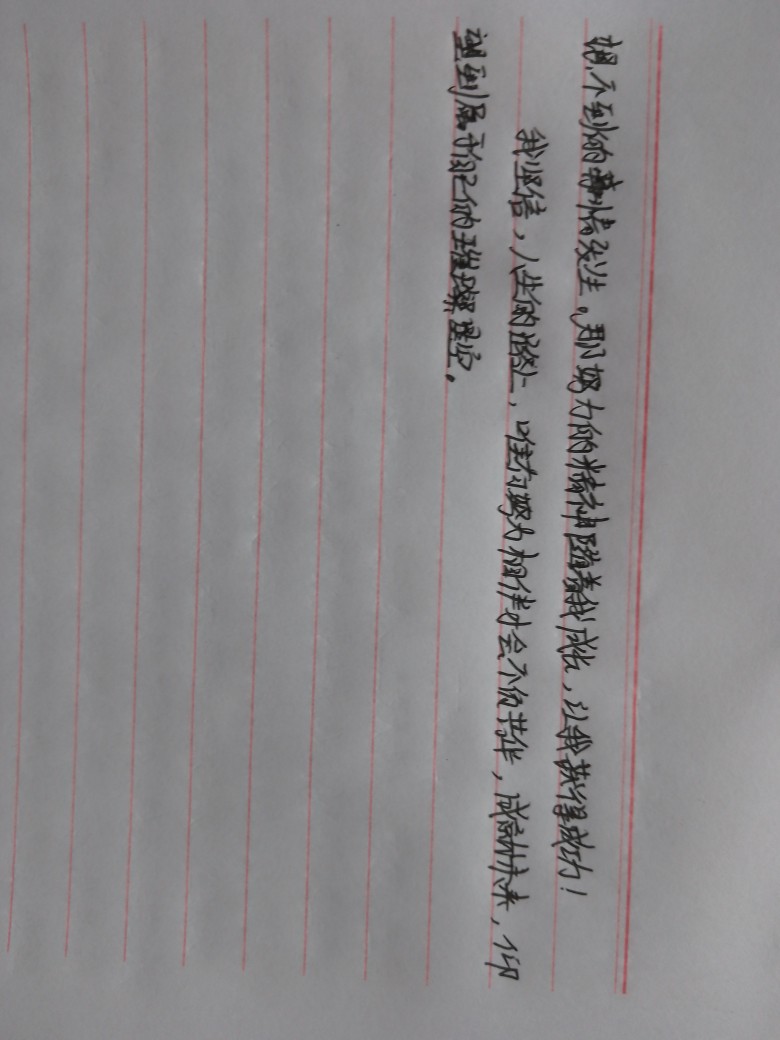 想不到的事情发生。那努力的精神随着我成长，让我获得成功！
我坚信，人生的路上，唯有努力相伴才会不负韶华，成就未来，仰
望到属于自己的璀璨星空。